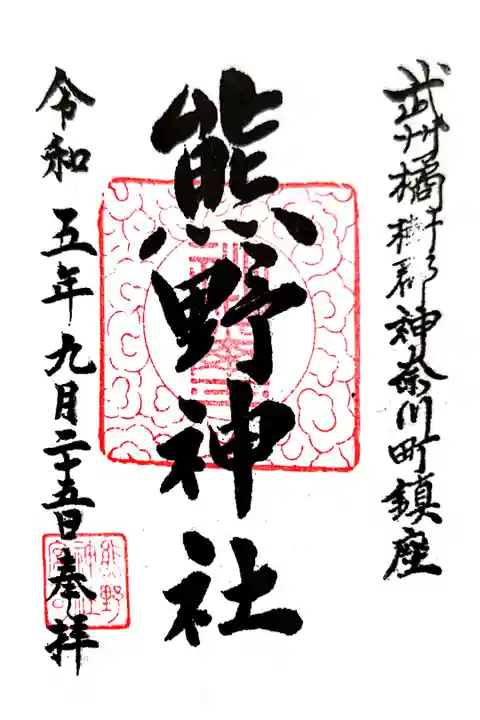 武州橘樹郡神奈川町鎮座
熊野神社
令和五年九月二十五日奉拝
熊野
神社